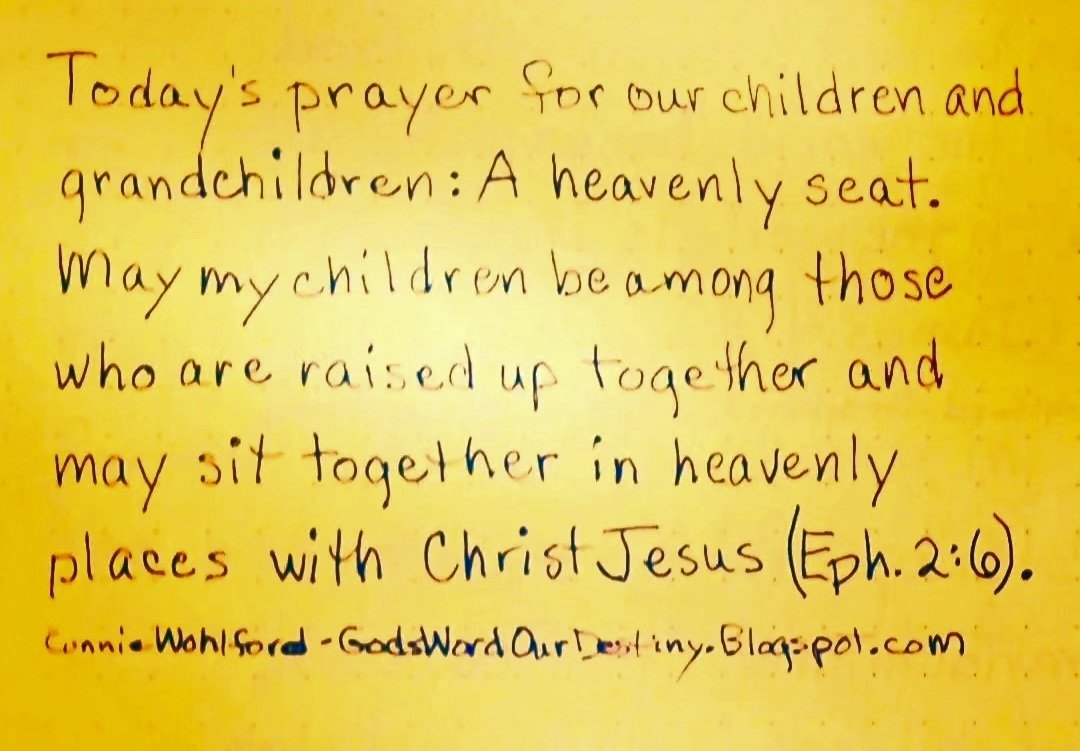 Today's prayer for our children and
grandchildren: A heavenly seat.
May my children be among those
who are raised up together and
may sit together in heavenly
places with Christ Jesus (Eph. 2:6).
Connie Wohlford - GodsWordOurDestiny.Blogspot.com